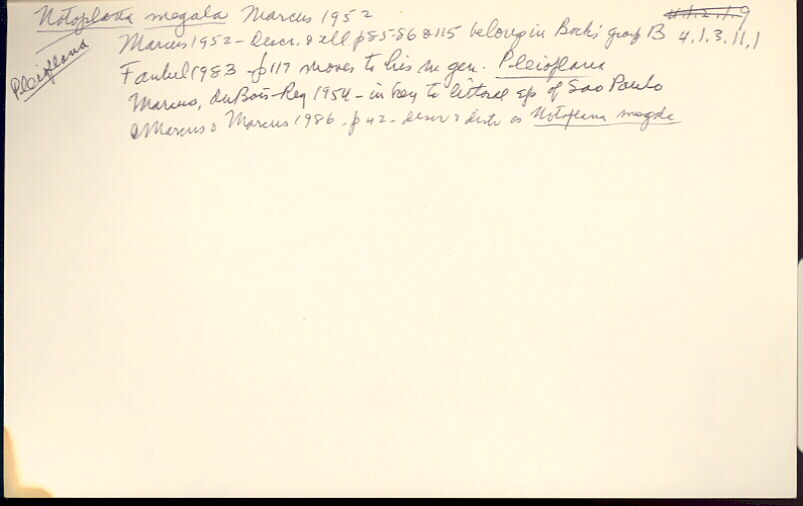 Notoplana megala Marcus 1952
4.1.2.1.9
Pleioplana
Marcus 1952 - descr. & ill. p 85-86 & 115 belongs in Bock's group B 4.1.3.11,1
Faubel 1983 - p 117 moves to his n gen. Pleioplana
Marcus, du Bois-Rey 1954 - in key to littoral sp of Sao Paulo
Marcus & Marcus 1986 - p 42 - descr & distr as Notoplana megala